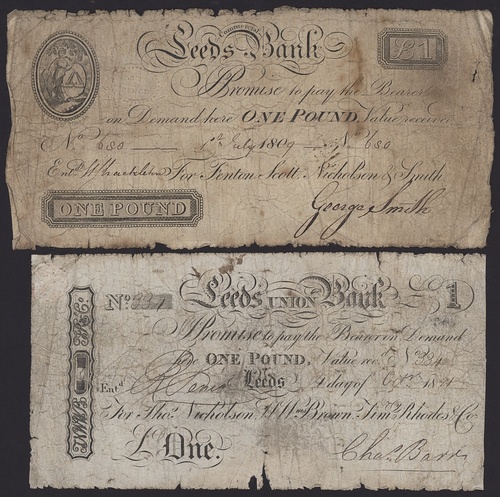 Commercial
Leeds Bank
£1
I Promise to pay the Bearer
on Demand here ONE POUND Value received
No. 680 1st July 1809 No. 680
Entd. For Fenton Scott, Nicholson & Smith
ONE POUND
George Smith
Leeds UNION Bank
No. 334 £1
I Promise to pay the Bearer on Demand
here ONE POUND, Value recd. No. 334
Entd. Leeds day of
For Thos. Nicholson, Brown, Rhodes & Co
£ One.
Chas. Barr